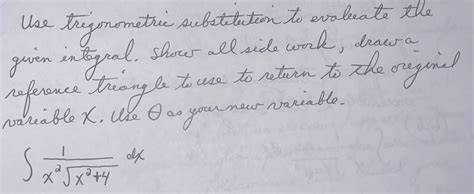 Use trigonometric substitution to evaluate the
given integral. Show all side work, draw a
reference triangle to use to return to the original
variable X. Use θ as your new variable.
∫ 1/(x²√(x²+4)) dx